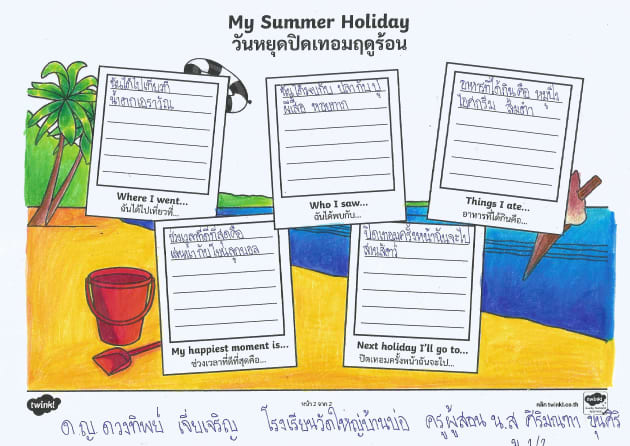 My Summer Holiday
วันหยุดปิดเทอมฤดูร้อน
ฉันได้ไปเที่ยวที่
น้ำตกเอราวัณ
Where I went...
ฉันได้ไปเที่ยวที่...
ฉันได้พบกับ ปลา กับ ปู
ผีเสื้อ หอยทาก
Who I saw...
ฉันได้พบกับ...
อาหารที่ได้กินคือ หมูปิ้ง
ไอศกรีม ส้มตำ
Things I ate...
อาหารที่ได้กินคือ...
ช่วงเวลาที่ดีที่สุดคือ
My happiest moment is...
ช่วงเวลาที่ดีที่สุดคือ...
ปิดเทอมครั้งหน้าฉันจะไป
สวนสัตว์
Next holiday I'll go to...
ปิดเทอมครั้งหน้าฉันจะไป...
twinkl
หน้า 2 จาก 2
คลิก twinkl.co.th
ด.ญ. ดวงทิพย์ เจี่ยเจริญ โรงเรียนวัดใหญ่บ้านบ่อ ครูผู้สอน น.ส ศิริมณฑา ขุนศิริ